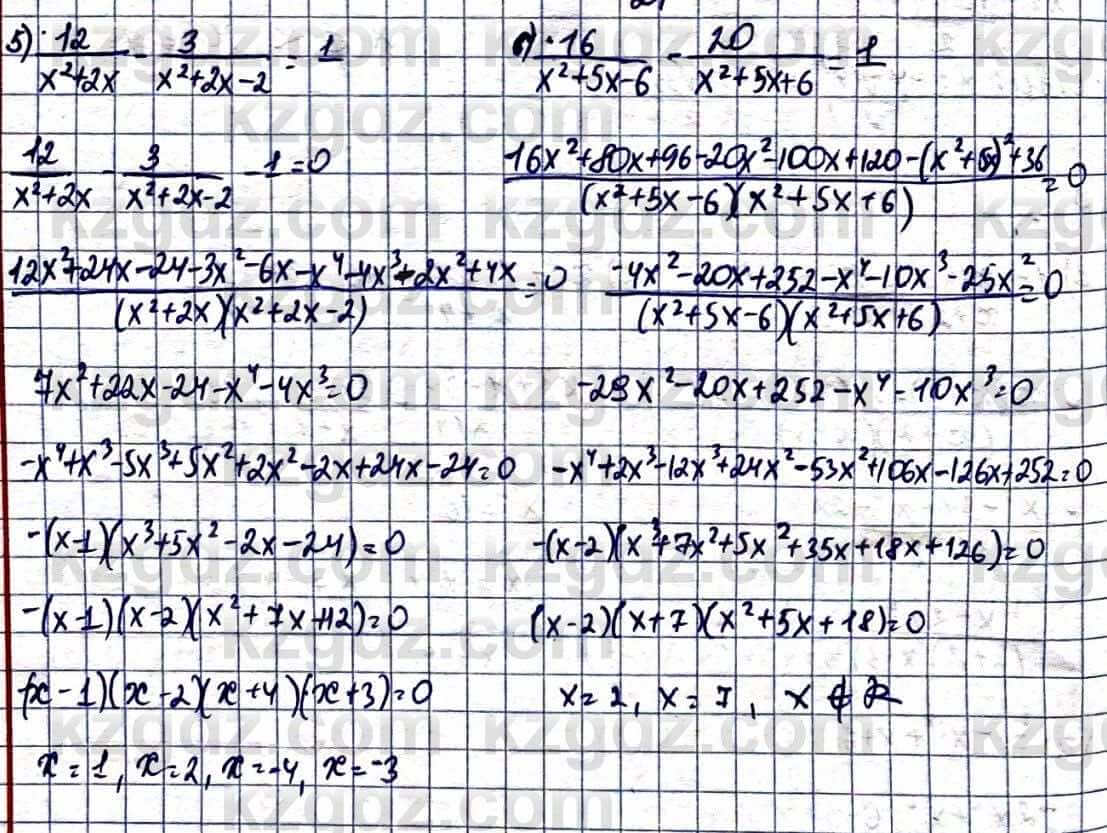 5) 12/(x²+2x) - 3/(x²+2x-2) = 1
12/(x²+2x) - 3/(x²+2x-2) - 1=0
(12x²+24x-24-3x²-6x-x⁴-4x³-2x²+4x)/((x²+2x)(x²+2x-2)) =0
7x²+22x-24-x⁴-4x³=0
-x⁴+x³-5x³+5x²+2x²-2x+24x-24=0
-(x-1)(x³+5x²-2x-24)=0
-(x-1)(x-2)(x²+7x+12)=0
(x-1)(x-2)(x+4)(x+3)=0
x=1, x=2, x=-4, x=-3
16/(x²+5x-6) - 20/(x²+5x+6) = 1
(16x²+80x+96-20x²-100x+120-(x²+5x)²+36)/((x²+5x-6)(x²+5x+6)) =0
(-4x²-20x+252-x⁴-10x³-25x²)/((x²+5x-6)(x²+5x+6)) =0
-29x²-20x+252-x⁴-10x³=0
-x⁴+2x³-12x³+24x²-53x²+106x-126x+252=0
-(x-2)(x³+7x²+5x²+35x+18x+126)=0
(x-2)(x+7)(x²+5x+18)=0
x=2, x=7, x∉R
kzgdz.com